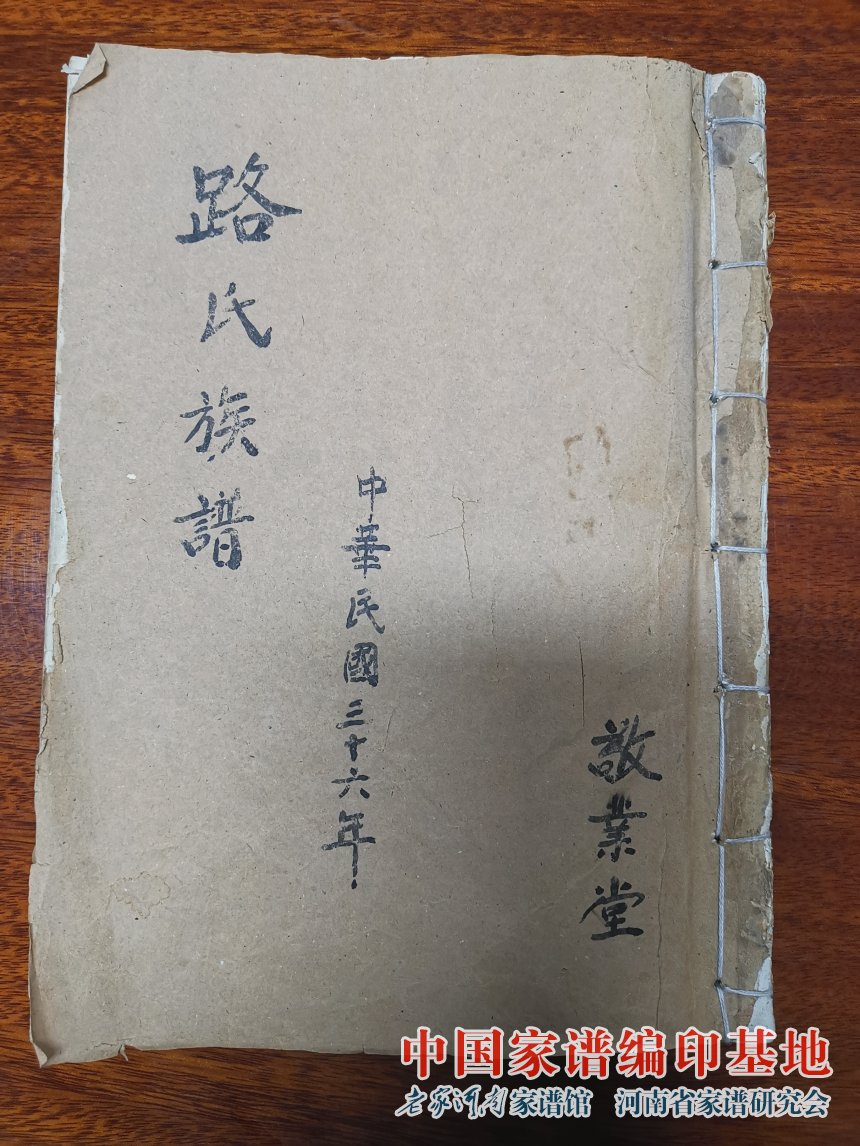 路氏族譜
中華民國三十六年
敬業堂
中国家谱编印基地
老家河南家谱馆 河南省家谱研究会